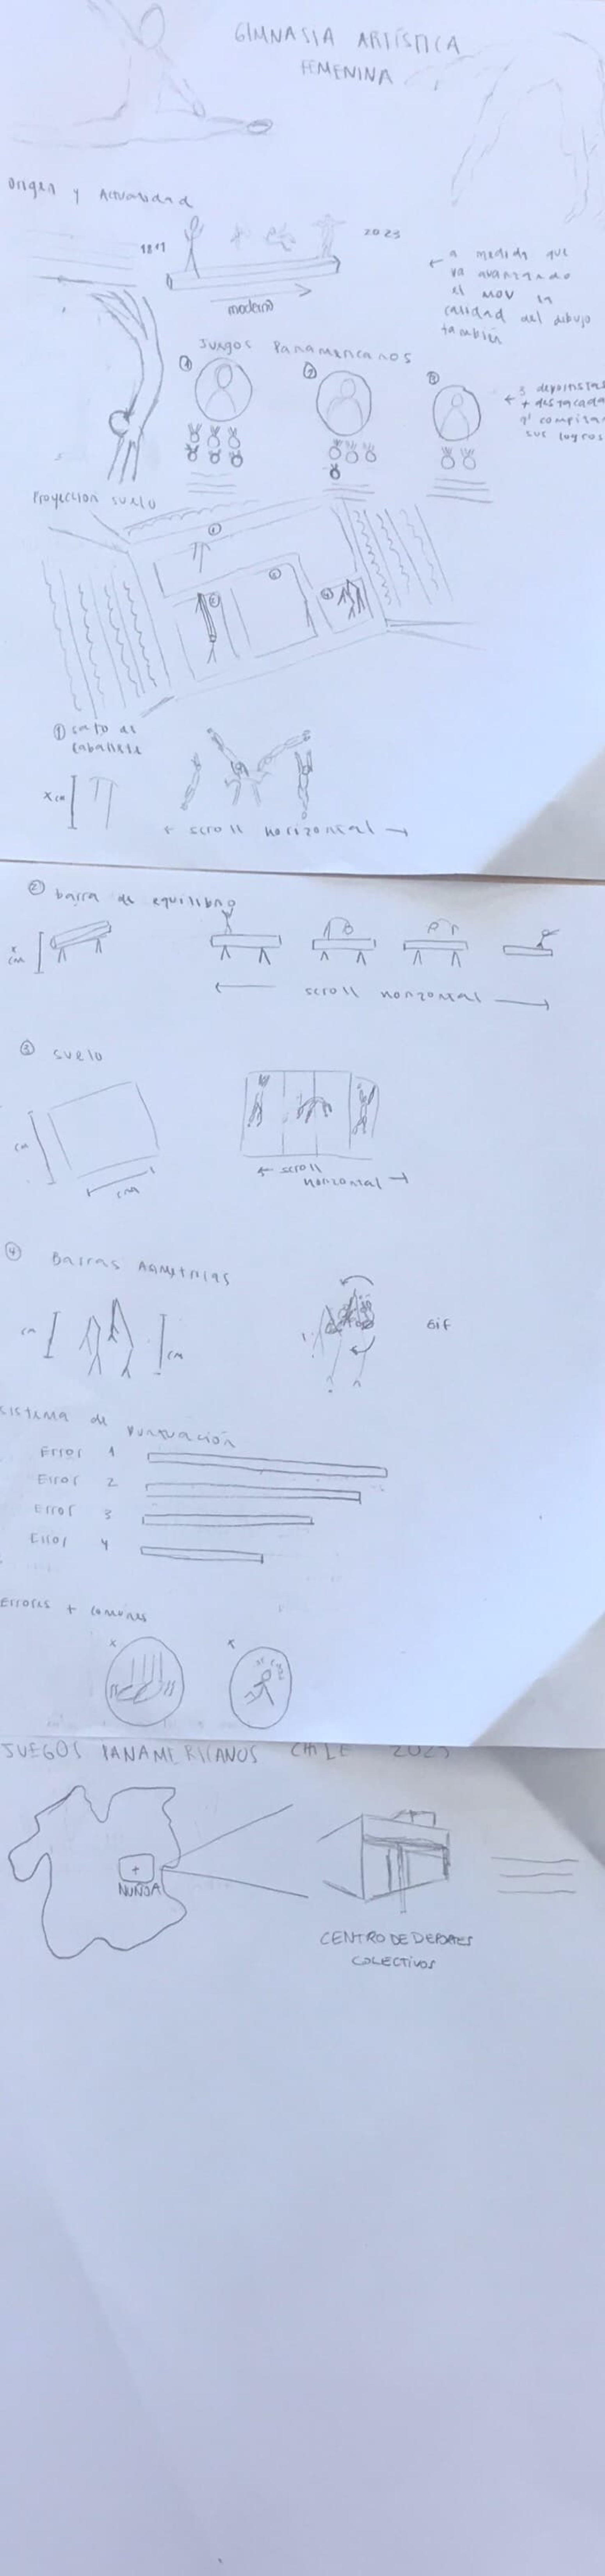 GIMNASIA ARTÍSTICA
FEMENINA
Origen y Actualidad
2023
moderno
← a medida que
va avanzando
el mov la
calidad del dibujo
también
Juegos Panamericanos
1
2
3
← 3 deportistas
+ destacada
q' compiten
sus logros
Proyección suelo
① salto de
caballete
x cm
← scroll horizontal →
② barra de equilibrio
x
cm
← scroll horizontal →
③ suelo
cm
cm
← scroll
horizontal →
④ Barras Asimetricas
cm
cm
Gif
Sistema de Puntuación
Error 1
Error 2
Error 3
Error 4
Errores + comunes
x
JUEGOS PANAMERICANOS CHILE 2023
+
ÑUÑOA
CENTRO DE DEPORTES
COLECTIVOS